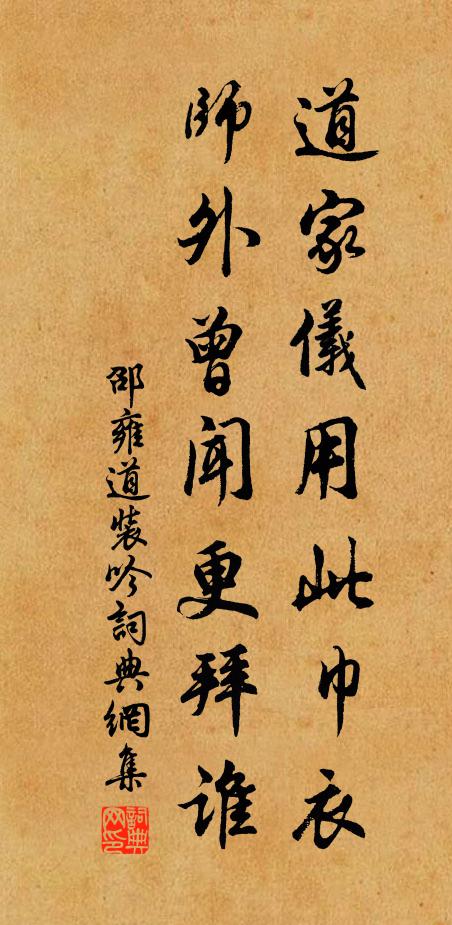 道家儀用此巾衣
師外曾聞更拜誰
邵雍道裝吟詞典網集
詞典网印